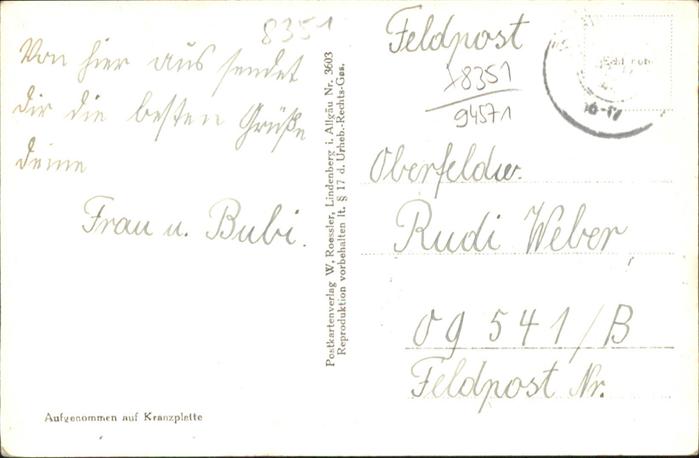 8351
Von hier aus sendet
dir die besten Grüße
deine
Frau u. Bubi.
Aufgenommen auf Kranzplatte
Postkartenverlag W. Roessler, Lindenberg i. Allgäu Nr. 3603
Reproduktion vorbehalten lt. § 17 d. Urheb.-Rechts-Ges.
Feldpost
8351
94571
Oberfeldw.
Rudi Weber
09541/B
Feldpost Nr.